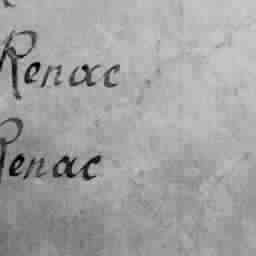 Renac
Renac